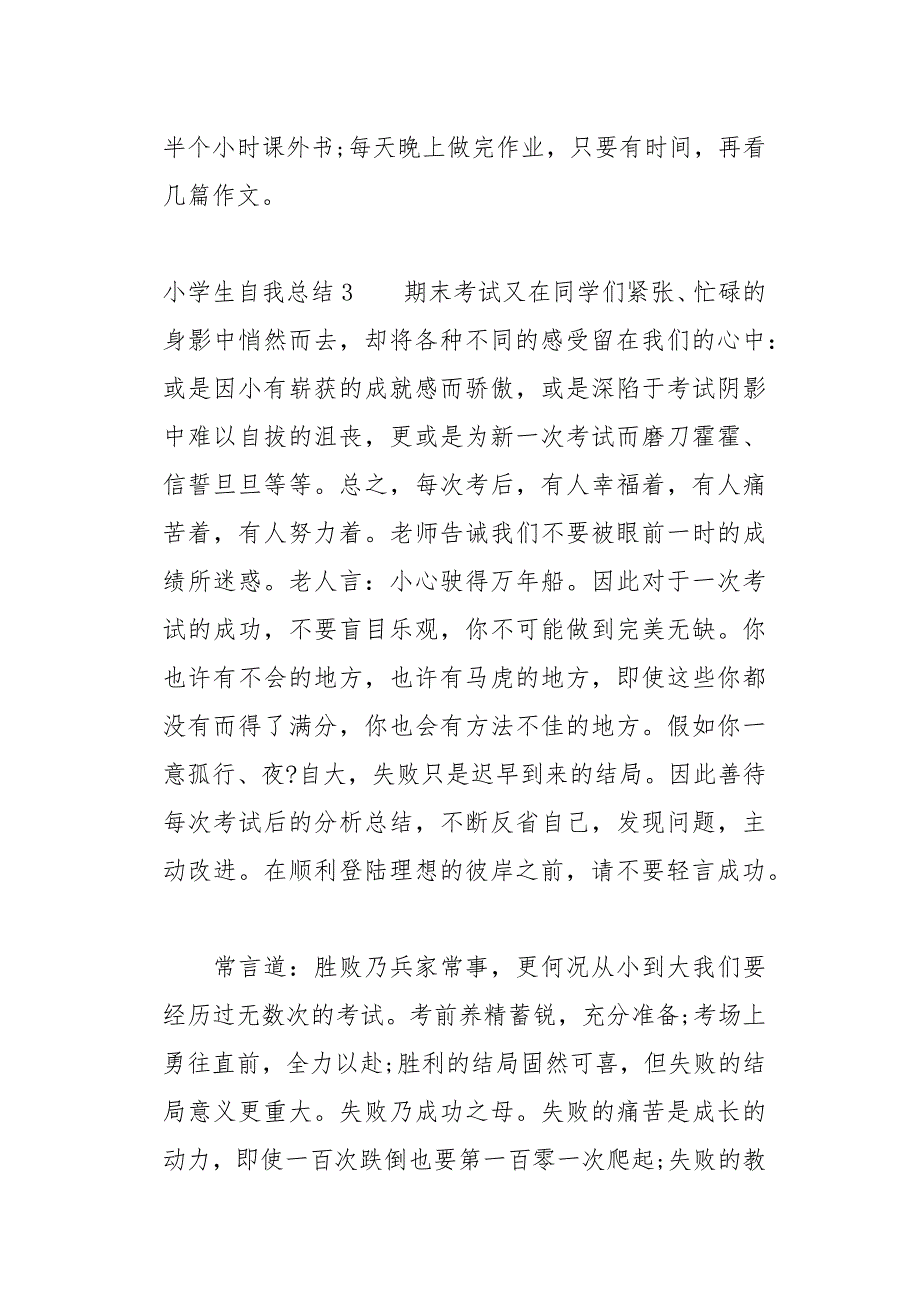 半个小时课外书;每天晚上做完作业，只要有时间，再看
几篇作文。
小学生自我总结3　　期末考试又在同学们紧张、忙碌的
身影中悄然而去，却将各种不同的感受留在我们的心中：
或是因小有崭获的成就感而骄傲，或是深陷于考试阴影
中难以自拔的沮丧，更或是为新一次考试而磨刀霍霍、
信誓旦旦等等。总之，每次考后，有人幸福着，有人痛
苦着，有人努力着。老师告诫我们不要被眼前一时的成
绩所迷惑。老人言：小心驶得万年船。因此对于一次考
试的成功，不要盲目乐观，你不可能做到完美无缺。你
也许有不会的地方，也许有马虎的地方，即使这些你都
没有而得了满分，你也会有方法不佳的地方。假如你一
意孤行、夜?自大，失败只是迟早到来的结局。因此善待
每次考试后的分析总结，不断反省自己，发现问题，主
动改进。在顺利登陆理想的彼岸之前，请不要轻言成功。
常言道：胜败乃兵家常事，更何况从小到大我们要
经历过无数次的考试。考前养精蓄锐，充分准备;考场上
勇往直前，全力以赴;胜利的结局固然可喜，但失败的结
局意义更重大。失败乃成功之母。失败的痛苦是成长的
动力，即使一百次跌倒也要第一百零一次爬起;失败的教